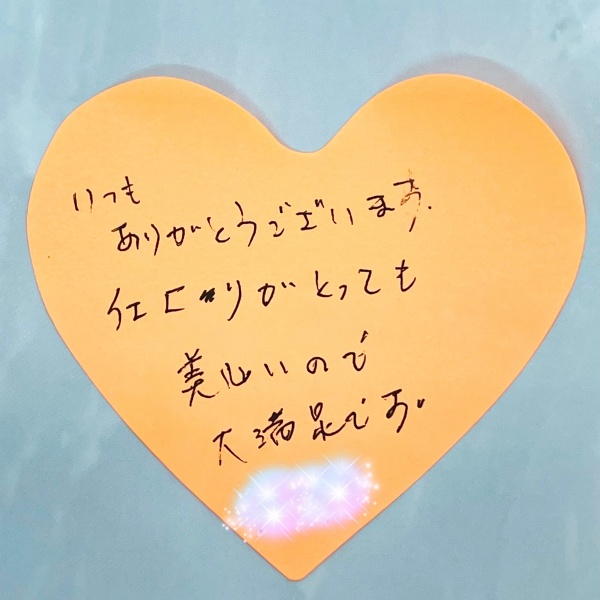 いつも
ありがとうございます.
仕上がりがとっても
美しいので
大満足です。